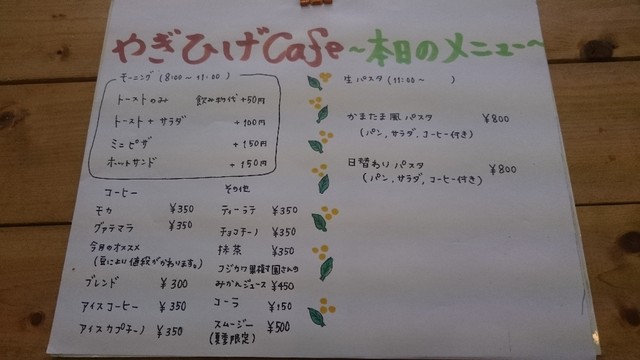 やぎひげCafe～本日のメニュー～
モーニング(8:00～11:00)
トーストのみ 飲み物代+50円
トースト+サラダ +100円
ミニピザ +150円
ホットサンド +150円
コーヒー
モカ ¥350
グァテマラ ¥350
今月のオススメ
(豆により値段がかわります。)
ブレンド ¥300
アイスコーヒー ¥350
アイスカプチーノ ¥350
その他
ティーラテ ¥350
チョコチーノ ¥350
抹茶 ¥350
コジカワ果樹園さんの
みかんジュース ¥450
コーラ ¥150
スムージー ¥500
(夏季限定)
生パスタ(11:00～ )
かまたま風パスタ ¥800
(パン,サラダ,コーヒー付き)
日替わりパスタ ¥800
(パン,サラダ,コーヒー付き)